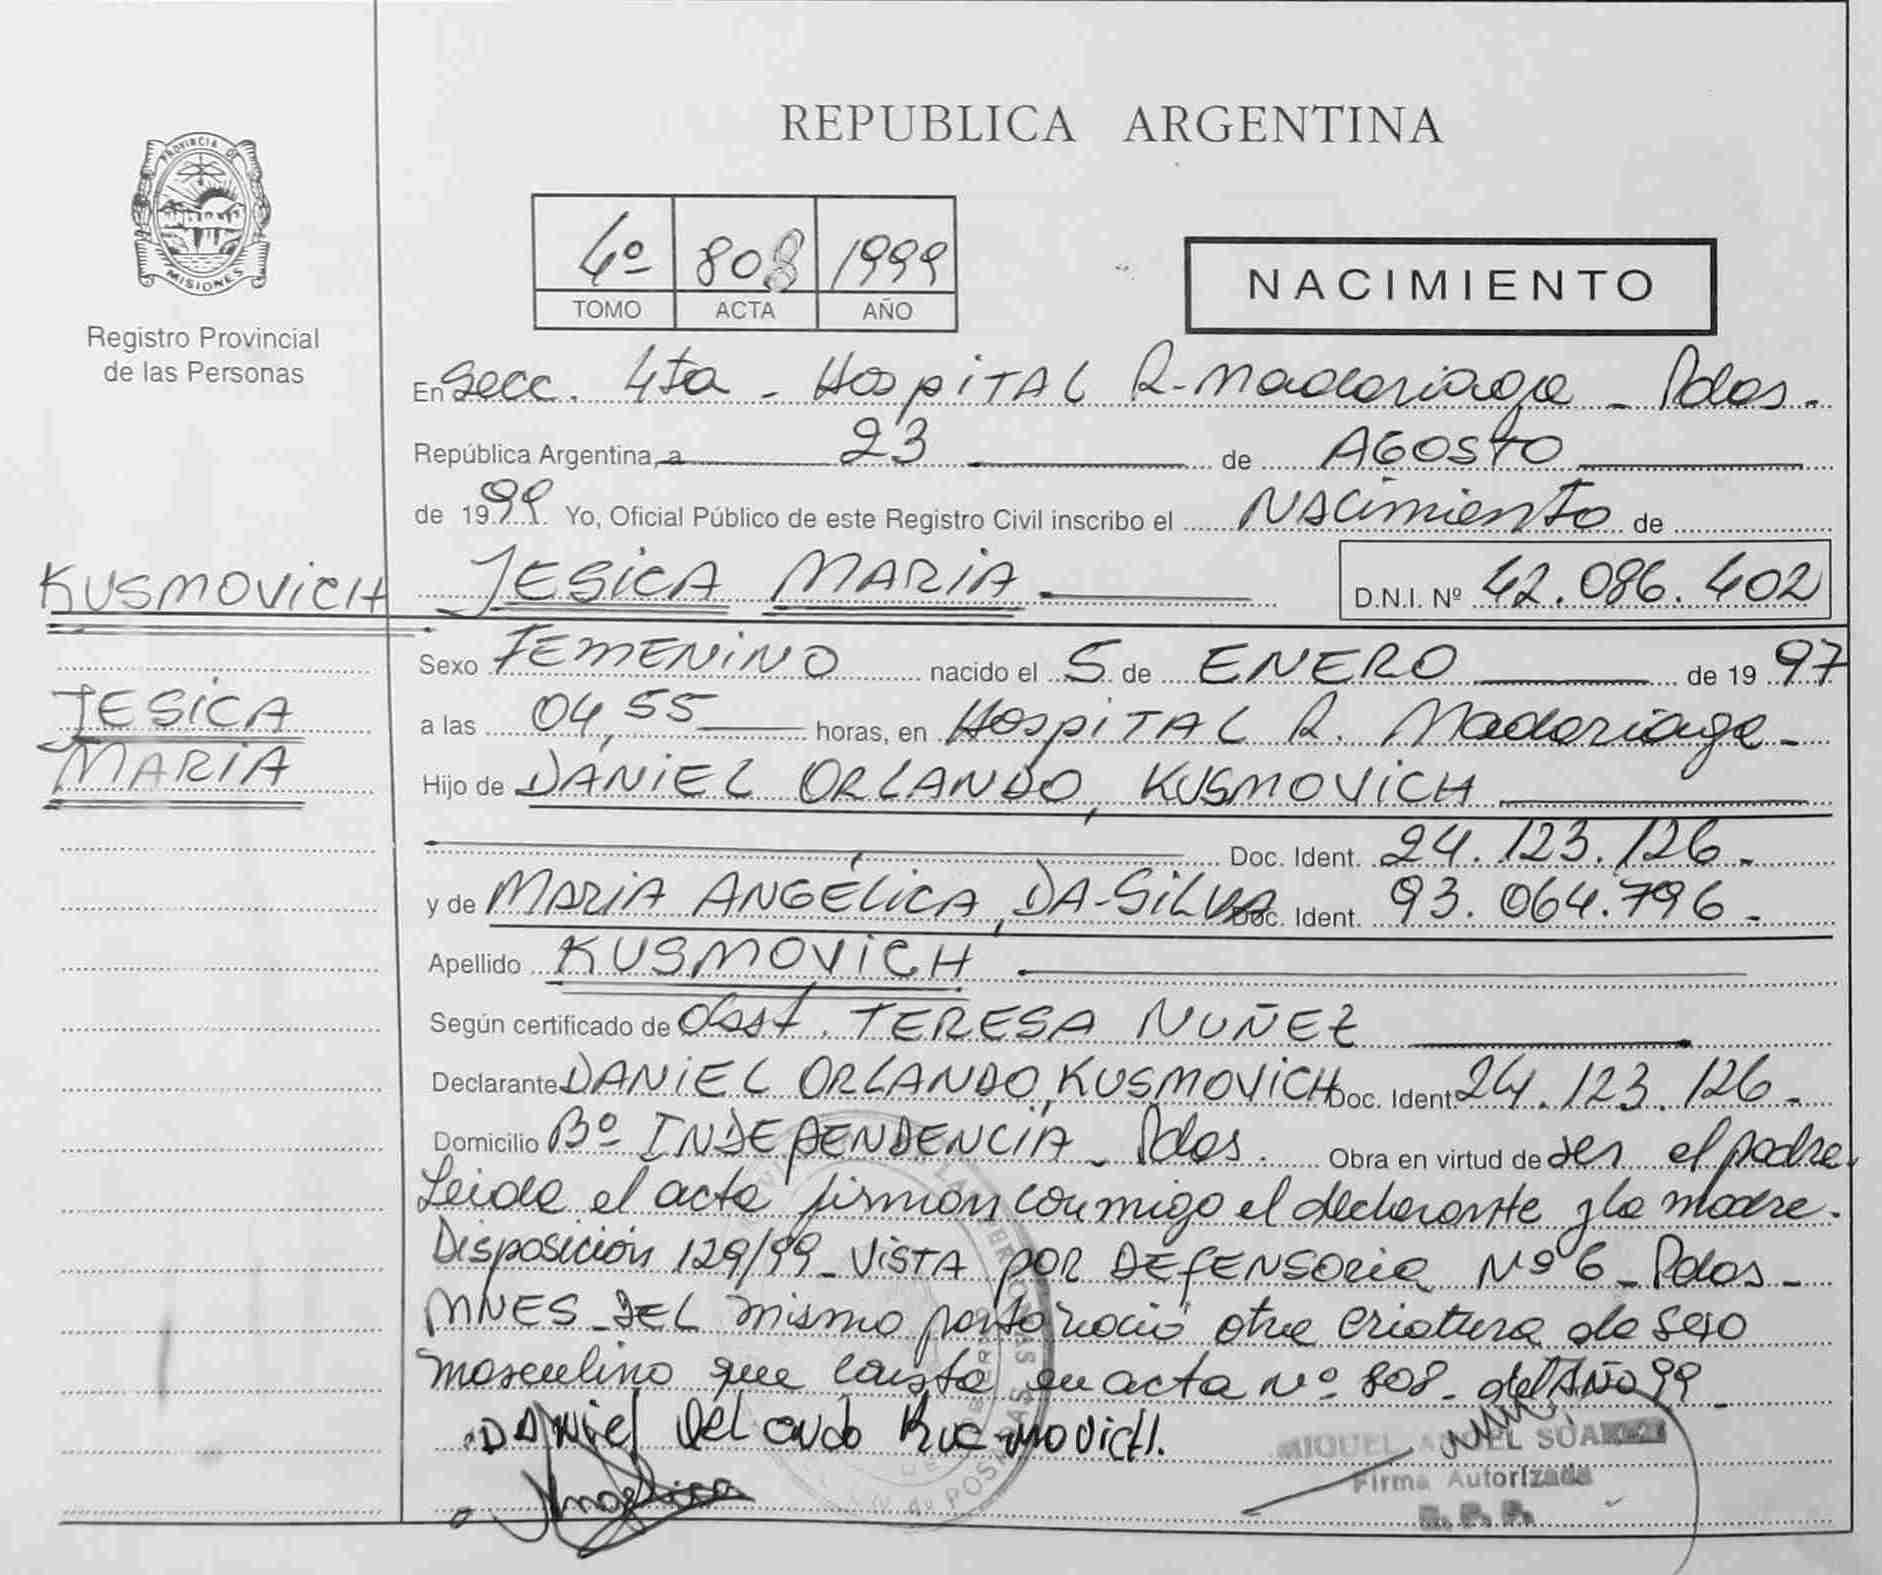 REPUBLICA ARGENTINA
PROVINCIA DE
MISIONES
Registro Provincial
de las Personas
4º 808 1999
TOMO ACTA AÑO
NACIMIENTO
En Secc. 4ta - HOSPITAL R. Madariaga - Pdas.
República Argentina, a 23 de AGOSTO
de 1999. Yo, Oficial Público de este Registro Civil inscribo el NACimiento de
KUSMOVICH JESICA MARIA D.N.I. Nº 42.086.402
Sexo FEMENINO nacido el 5 de ENERO de 1997
JESICA
MARIA
a las 04,55 horas, en HOSPITAL R. Madariaga -
Hijo de DANIEL ORLANDO, KUSMOVICH
Doc. Ident. 24.123.126.-
y de MARIA ANGÉLICA, DA-SILVA Doc. Ident. 93.064.796-
Apellido KUSMOVICH
Según certificado de Obst. TERESA NUÑEZ
Declarante DANIEL ORLANDO, KUSMOVICH Doc. Ident. 24.123.126-
Domicilio Bº INDEPENDENCIA - Pdas. Obra en virtud de ser el padre.
Leida el acta firman conmigo el declarante y la madre.
Disposición 129/99 - VISTA POR DEFENSORIA Nº 6 - Pdas -
MNES - DEL mismo parto nació otra criatura de sexo
masculino que consta en acta nº 808 - del AÑO 99
DANiel ORLando Kusmovich.
Angelica
MIGUEL ANGEL SUAREZ
Firma Autorizada
R. P. P.